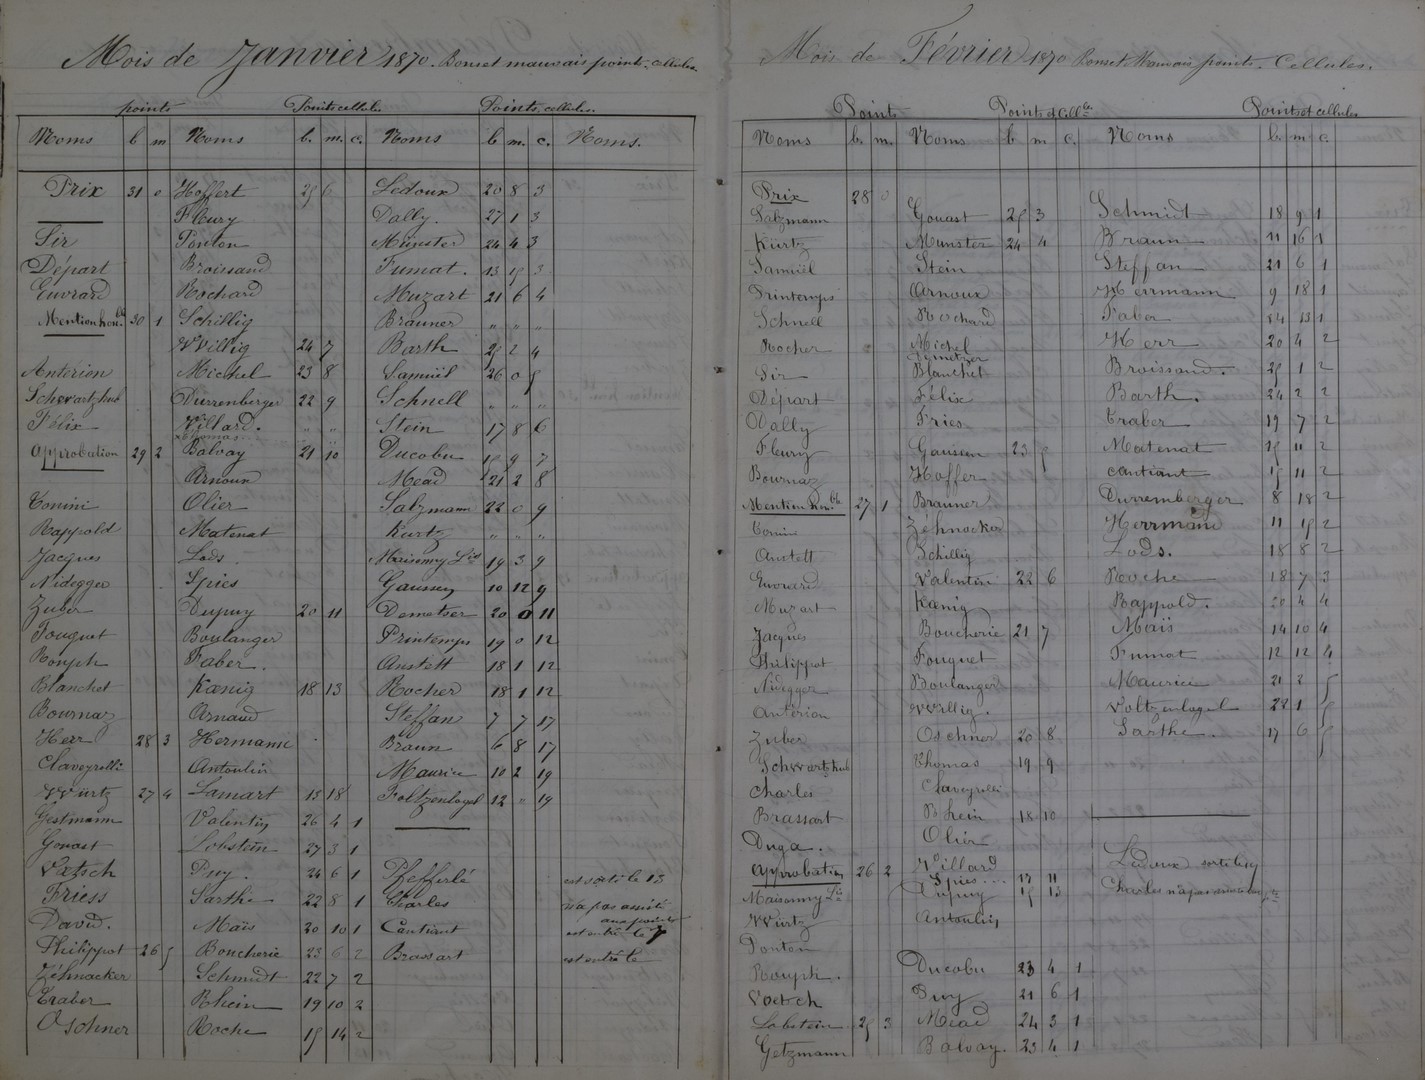 Mois de Janvier 1870. Bons et mauvais points - cellules
points Points cellules Points cellules.
Noms b m Noms b. m. c. Noms b m. c. Noms.
Prix 31 0 Hoffert 25 6 Ledoux 20 8 3
Fleury Dally. 27 1 3
Sir Ponton Münster 24 4 3
Départ Broissand Fumat. 13 15 3
Euvrard Rochard Muzart 21 6 4
Mention hon.ble 30 1 Schillig Brauner " " "
Willig 24 7 Barth 25 2 4
Anterion Michel 23 8 Samuël 26 0 5
Schwartzhub Durrenberger 22 9 Schnell " " "
Félix Villard. " " Stein 17 8 6
Thomas
Approbation 29 2 Balvay 21 10 Ducobu 15 9 7
Arnoux Mead 21 2 8
Tomini Olier Salzmann 22 0 9
Rappold Matenat Kurtz " " "
Jacques Lods Maisonny Ls 19 3 9
Nidegger Spies Gaussen 10 12 9
Zuber Dupuy 20 11 Demetzer 20 0 11
Fouquet Boulanger Printemps 19 0 12
Rouph Faber. Anstett 18 1 12
Blanchet Kœnig 18 13 Rocher 18 1 12
Bournaz Arnaud Steffan 7 7 17
Herr 28 3 Hermann Braun 6 8 17
Claveyrolli Antoulin Maurice 10 2 19
Würtz 27 4 Lamart 13 18 Foltzenlogel 12 " 19
Gestmann Valentin 26 4 1
Gouast Lobstein 27 3 1
Vatsch Puy. 24 6 1 Pfefferlé est sorti le 13
Friess Sarthe 22 8 1 Charles n'a pas assisté
aux points
David. Maïs 20 10 1 Cantiant est entré le 7
Philippot 26 5 Boucherie 23 6 2 Brassart est entré le
Zéhnacker Schmidt 22 7 2
Traber Rhein 19 10 2
Oschner Roche 15 14 2
Mois de Février 1870 Bons et Mauvais points - Cellules.
Points Points et Cell.les Points et cellules
Noms b. m. Noms b m c. Noms b. m c.
Prix 28 0
Salzmann Gouast 25 3 Schmidt 18 9 1
Kurtz Munster 24 4 Braun 11 16 1
Samuël Stein Steffan 21 6 1
Printemps Arnoux Herrmann 9 18 1
Schnell Rochard Faber 14 13 1
Rocher Michel Herr 20 4 2
Demetzer
Sir Blanchet Broissand. 25 1 2
Départ Félix Barth. 24 2 2
Dally Fries Traber 19 7 2
Fleury Gaussen 23 5 Matenat 15 11 2
Bournaz Hoffer Cantiant 15 11 2
Mention hon.ble 27 1 Brauner Durremberger 8 18 2
Tomini Zéhnacker Herrmand 11 15 2
Anstett Schillig Lods. 18 8 2
Euvrard Valentin 22 6 Roche 18 7 3
Muzart Kœnig Rappold. 20 4 4
Jacques Boucherie 21 7 Maïs 14 10 4
Philippot Fouquet Fumat 12 12 4
Nidegger Boulanger Maurice 21 2 5
Antérion Willig. Voltzenlogel 22 1 5
Zuber Oschner 20 8 Sarthe. 17 6 5
Schwartzhub Thomas 19 9
Charles Claveyrolli
Brassart Rhein 18 10
Duga. Olier
Approbation 26 2 Villard Ledoux sorti le
Spies 17 11
Maisonny Ls Dupuy 15 13 Charles n'a pas assisté
Würtz Antoulin
Ponton
Rouph. Ducobu 23 4 1
Voetsch Puy 21 6 1
Lobstein 25 3 Mead 24 3 1
Getzmann Balvay. 23 4 1